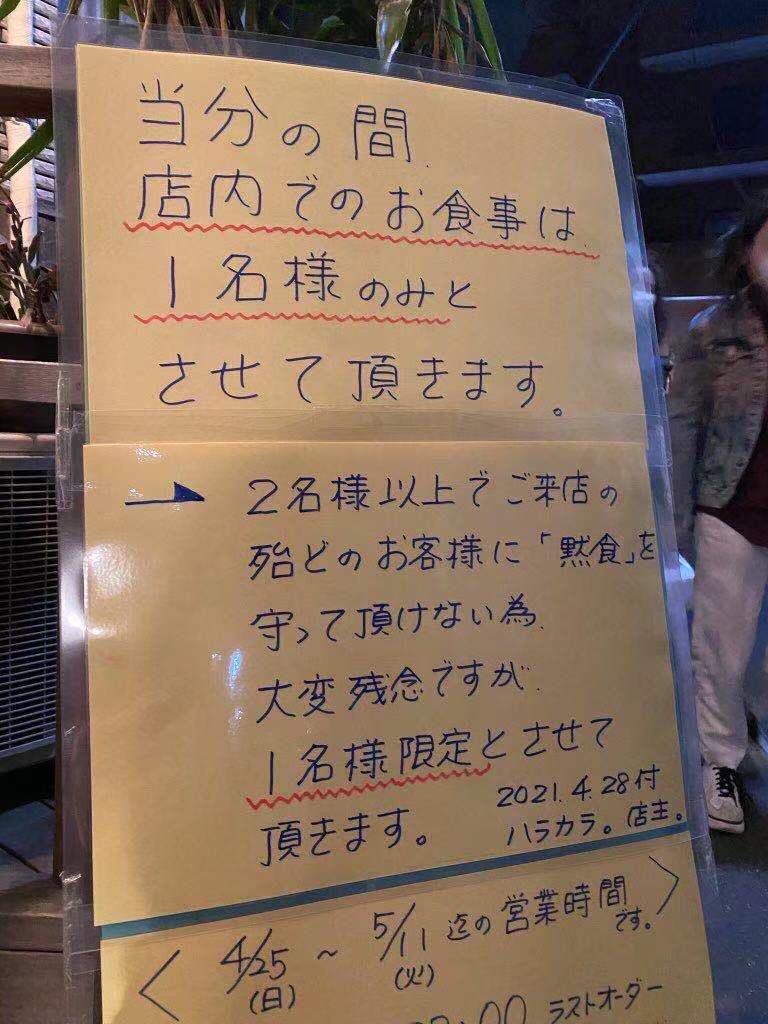 当分の間、
店内でのお食事は、
1名様のみと
させて頂きます。
→ 2名様以上でご来店の
殆どのお客様に「黙食」を
守って頂けない為、
大変残念ですが、
1名様限定とさせて
頂きます。
2021.4.28付
ハラカラ。店主。
〈 4/25(日) ~ 5/11(火) 迄の営業時間です。〉
:00 ラストオーダー